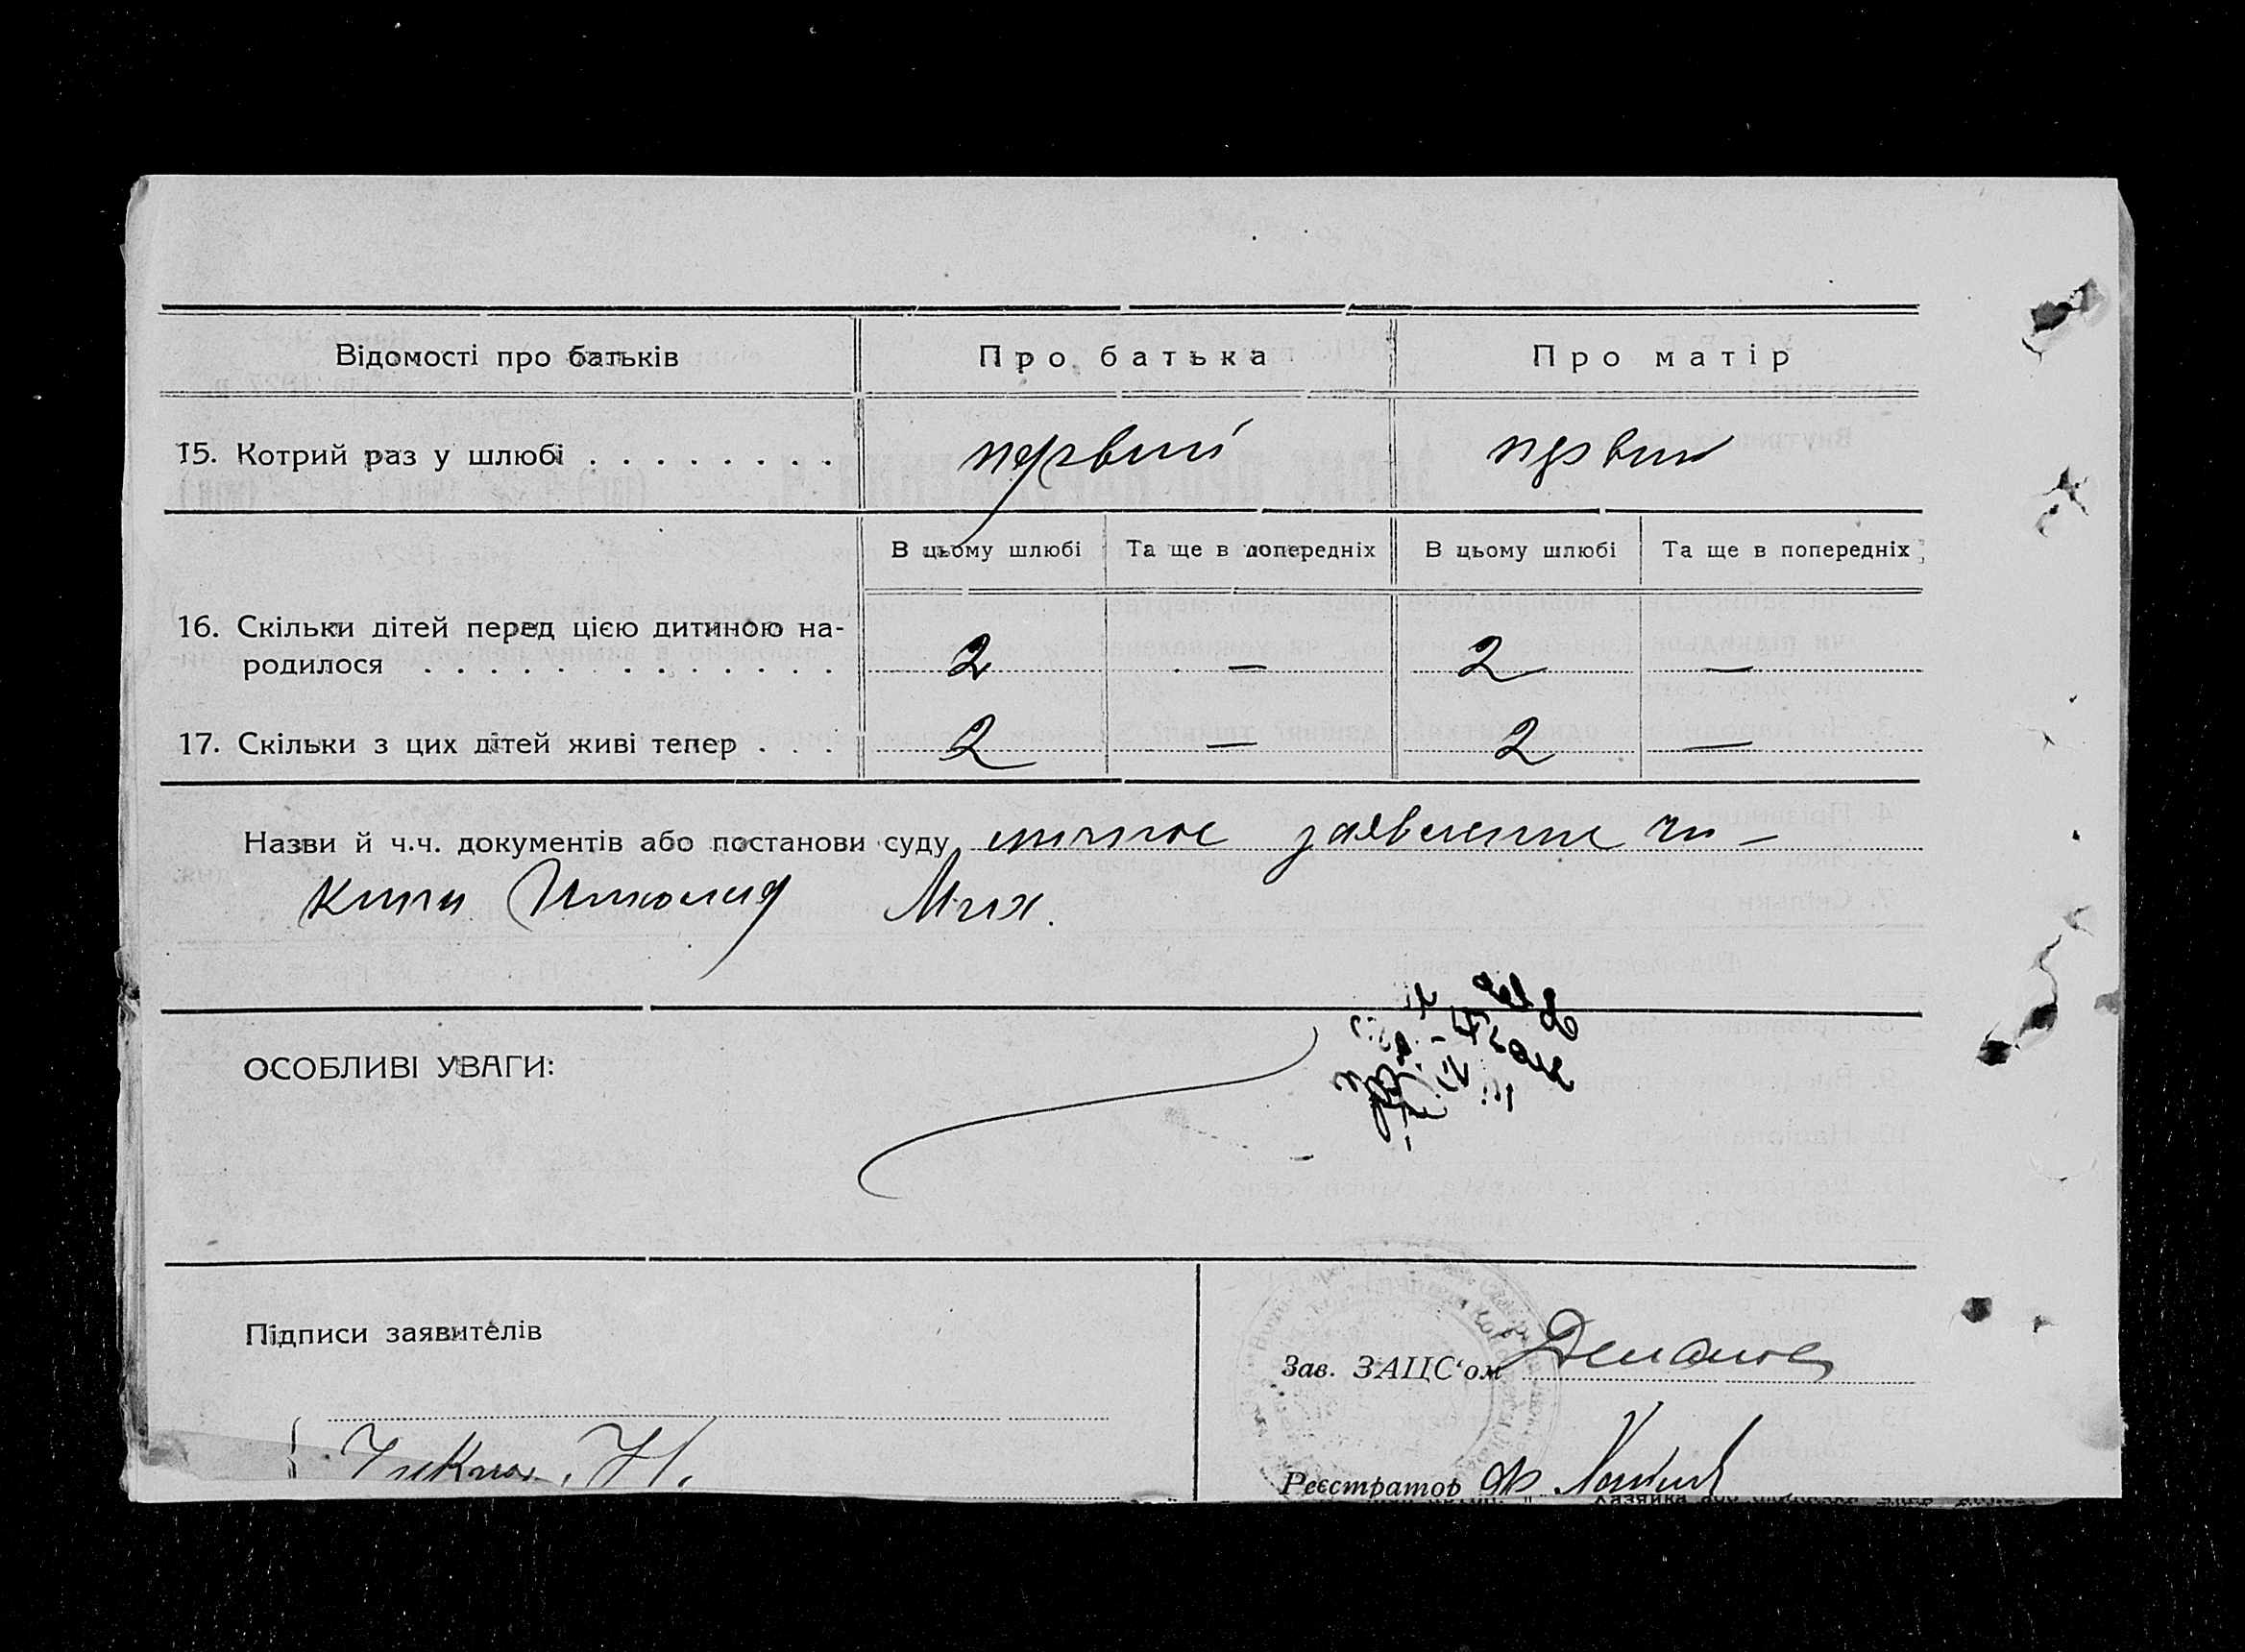 Відомості про батьків
Про батька
Про матір
15. Котрий раз у шлюбі
первий
первий
В цьому шлюбі
Та ще в попередніх
В цьому шлюбі
Та ще в попередніх
16. Скільки дітей перед цією дитиною на-
родилося
2 — 2 —
17. Скільки з цих дітей живі тепер
2 — 2 —
Назви й ч.ч. документів або постанови суду личное заявление
Мих.
ОСОБЛИВІ УВАГИ:
Підписи заявителів
Зав. ЗАЦС'ом
Реєстратор